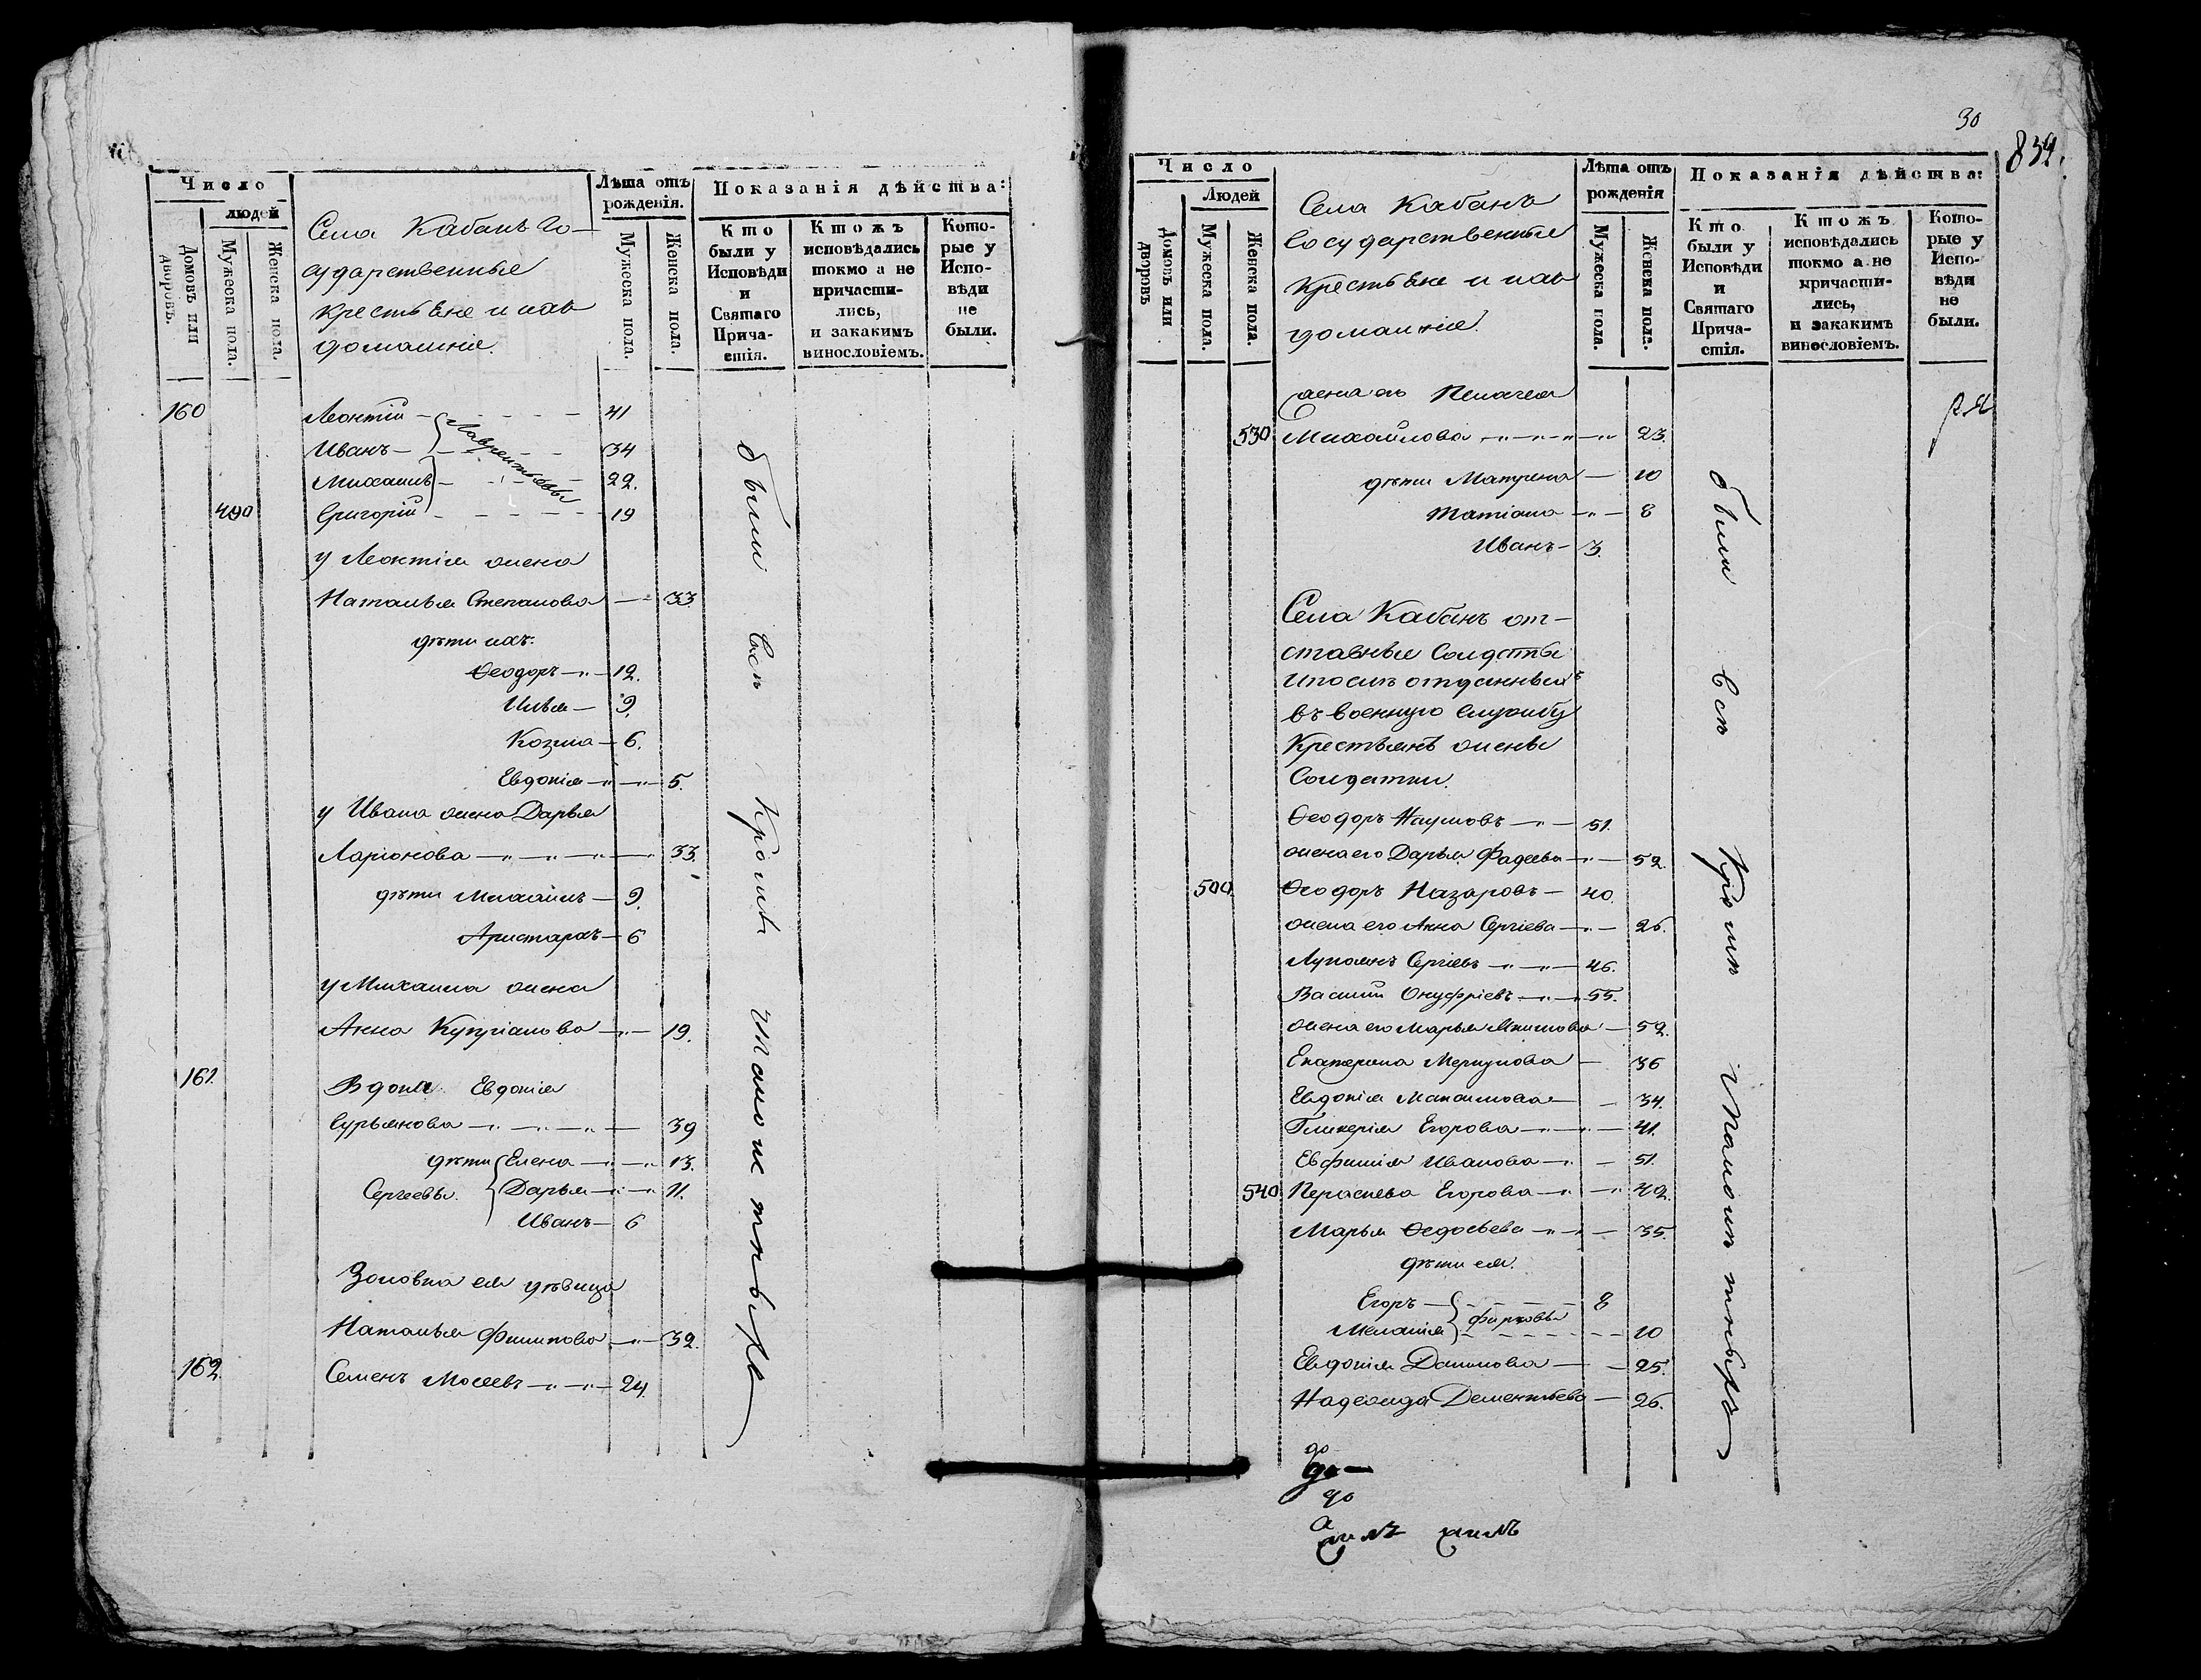 Число
людей
Домовъ или дворовъ.
Мужеска пола.
Женска пола.
Села Кабанъ Го-
сударственные
крестьяне и ихъ
домашніе.
Лѣта отъ
рожденія.
Мужеска пола.
Женска пола.
Показанія дѣйства:
Кто
были у
Исповѣди
и
Святаго
Прича-
стія.
Ктожъ
исповѣдались
токмо а не
причасти-
лись,
и закакимъ
винословіемъ.
Кото-
рые у
Испо-
вѣди
не
были.
160 Леонтій 41
Иванъ 34
Лаврентьевы
Михаилъ 22.
490 Григорій 19
у Леонтія жена
Наталья Степанова 33.
дѣти ихъ:
Ѳеодоръ 12.
Илья 9.
Козма 6.
Евдокія 5.
у Ивана жена Дарья
Ларіонова 33.
дѣти Михаилъ 9.
Аристархъ 6
у Михаила жена
Анна Купріанова 19.
161. Вдова Евдокія
Гурьянова 39
дѣти Елена 13.
Сергеевы. Дарья 11.
Иванъ 6
Золовка ея дѣвица
Наталья Филипова 32.
162. Семенъ Мосеевъ 24.
были Всѣ Кромѣ
30
834.
Число
Людей
Домовъ или дворовъ
Мужеска пола.
Женска пола.
Села Кабанъ
Государственные
Крестьяне и ихъ
домашніе.
Лѣта отъ
рожденія
Мужеска пола.
Женска пола.
Показанія дѣйства:
Кто
были у
Исповѣди
и
Святаго
Прича-
стія.
Ктожъ
исповѣдались
токмо а не
причасти-
лись,
и закакимъ
винословіемъ.
Кото-
рые у
Испо-
вѣди
не
были.
жена его Пелагея
530 Михайлова 23.
дѣти Матрена 10
Татіана 8
Иванъ 3.
Села Кабанъ от-
ставные Солдаты
и послѣ отданныхъ
въ военную службу
Крестьянъ жены
Солдатки.
Ѳеодоръ Наумовъ 51.
жена его Дарья Фадеева 52.
500. Ѳеодоръ Назаровъ 40.
жена его Анна Сергіева 26.
Лукоянъ Сергіевъ 46.
Василій Онуфріевъ 55.
жена его Марья 52.
Екатерина Меркулова 36
Евдокія Максимова 34.
Гликерія Егорова 41.
Евфимія Иванова 51.
540. Парасковья Егорова 42.
Марья Ѳедосѣева 35.
дѣти ея.
Егоръ 8
Меланія 10
Евдокія Данилова 25.
Надежда Дементьева 26.
были Всѣ Кромѣ
до
до
до